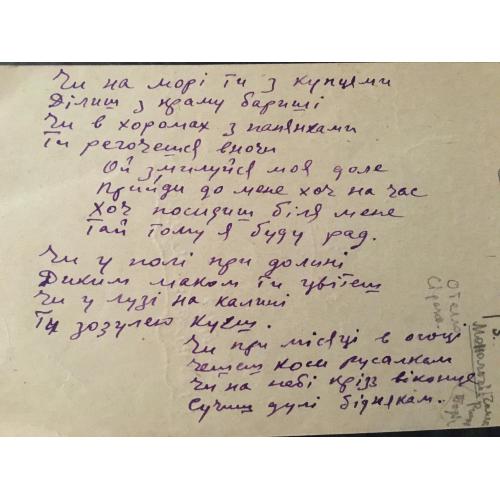 Чи на морі ти з купцями
Ділиш з краму бариші
Чи в хоромах з панянками
Ти регочешся вночи
Ой змилуйся моя доле
Прийди до мене хоч на час
Хоч посидиш біля мене
Тай тому я буду рад.
Чи у полі при долині
Диким маком ти цвітеш
Чи у лузі на калині
Ти зозулею куеш.
Чи при місяці в
Чешеш коси русалкам
Чи на небі крізь віконце
Сучиш дулі біднякам.